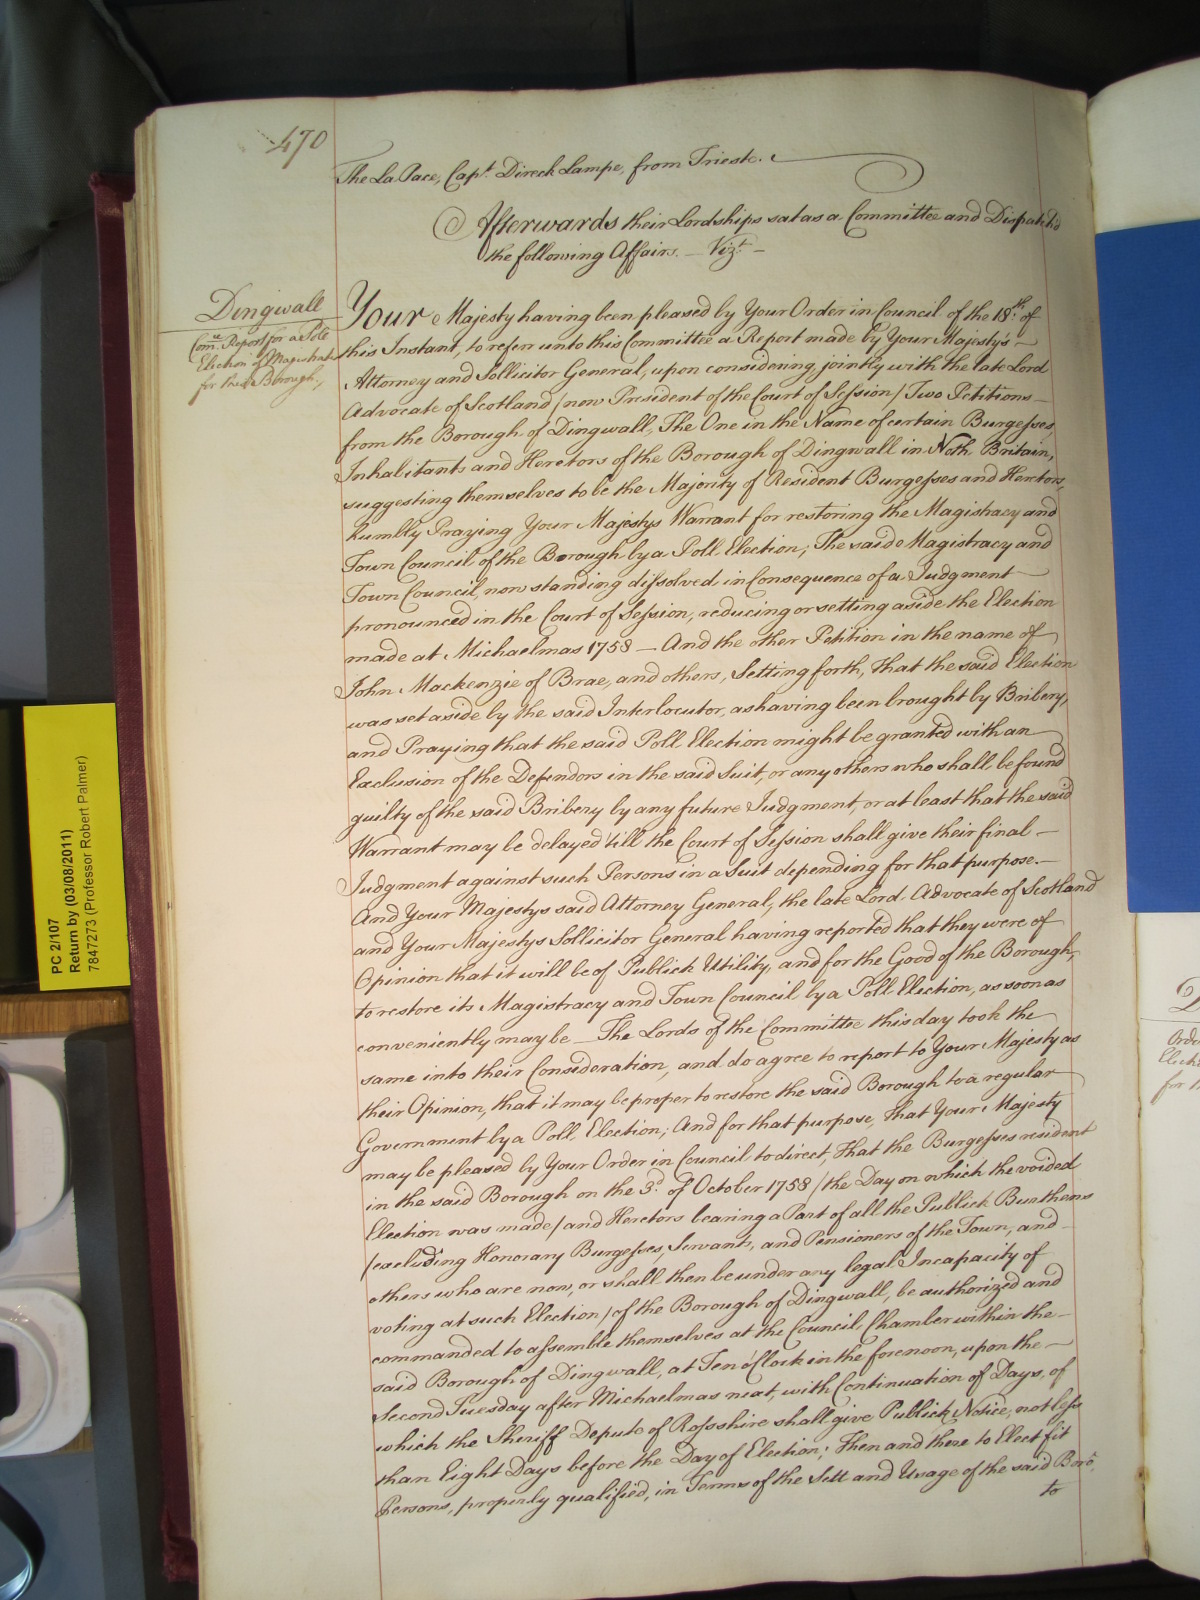 470
The La Pace, Capt. Direck Lampe, from Trieste.
Afterwards their Lordships sat as a Committee and Dispatch'd
the following Affairs. — Vizt. —
Dingwall
Comee. Report for a Pole
Election of Magistrates
for this Borough,
Your Majesty having been pleased by Your Order in Council of the 18th. of
this Instant, to referr unto this Committee a Report made by Your Majestys —
Attorney and Sollicitor General, upon considering jointly with the late Lord
Advocate of Scotland /now President of the Court of Session/ Two Petitions —
from the Borough of Dingwall, The One in the Name of certain Burgesses,
Inhabitants and Heretors of the Borough of Dingwall in Noth Britain,
suggesting themselves to be the Majority of Resident Burgesses and Heretors,
humbly Praying Your Majestys Warrant for restoring the Magistracy and
Town Council of the Borough by a Poll Election; The said Magistracy and
Town Council, now standing dissolved in Consequence of a Judgment —
pronounced in the Court of Session, reducing or setting aside the Election
made at Michaelmas 1758 — And the other Petition in the name of
John Mackenzie of Brae, and others, Setting forth, that the said Election
was set aside by the said Interlocutor, as having been brought by Bribery,
and Praying that the said Poll Election might be granted with an
Exclusion of the Defendors in the said Suit, or any others who shall be found
guilty of the said Bribery by any future Judgment, or at least that the said
Warrant may be delayed till the Court of Session shall give their final —
Judgment against such Persons in a Suit depending for that purpose. —
And Your Majestys said Attorney General, the late Lord Advocate of Scotland
and Your Majestys Sollicitor General having reported that they were of
Opinion that it will be of Publick Utility, and for the Good of the Borough,
to restore its Magistracy and Town Council by a Poll Election, as soon as
conveniently may be — The Lords of the Committee this day took the
same into their Consideration, and do agree to report to Your Majesty as
their Opinion, that it may be proper to restore the said Borough to a regular
Government by a Poll Election; And for that purpose, that Your Majesty
may be pleased by Your Order in Council to direct, that the Burgesses resident
in the said Borough on the 3d. of October 1758 /the Day on which the voided
Election was made/ and Heretors bearing a Part of all the Publick Burthens
/excluding Honorary Burgesses, Servants, and Pensioners of the Town, and —
others who are now, or shall then be under any legal Incapacity of
voting at such Election/ of the Borough of Dingwall, be authorized and
commanded to assemble themselves at the Council Chamber within the —
said Borough of Dingwall, at Ten o'Clock in the forenoon, upon the —
Second Tuesday after Michaelmas next, with Continuation of Days, of
which the Sheriff Depute of Rossshire shall give Publick Notice, not less
than Eight Days before the Day of Election; Then and there to Elect fit
Persons, properly qualified, in Terms of the Sett and Usage of the said Boro.
to
PC 2/107
Return by (03/08/2011)
7847273 (Professor Robert Palmer)